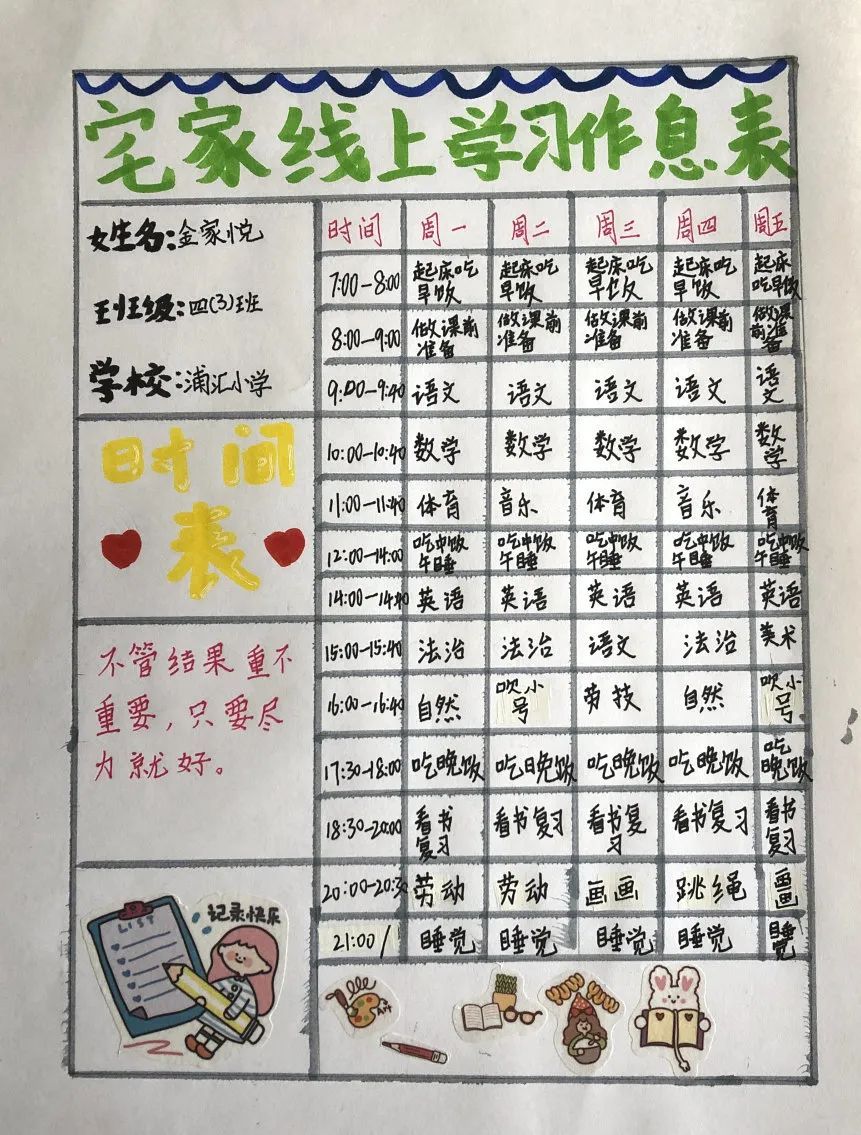 宅家线上学习作息表
女生名:金家悦
班级:四(3)班
学校:浦汇小学
时间表
不管结果重不
重要,只要尽
力就好。
记录快乐
LIST
时间 周一 周二 周三 周四 周五
7:00-8:00 起床吃早饭 起床吃早饭 起床吃早饭 起床吃早饭 起床吃早饭
8:00-9:00 做课前准备 做课前准备 做课前准备 做课前准备 做课前准备
9:00-9:40 语文 语文 语文 语文 语文
10:00-10:40 数学 数学 数学 数学 数学
11:00-11:40 体育 音乐 体育 音乐 体育
12:00-14:00 吃中饭午睡 吃中饭午睡 吃中饭午睡 吃中饭午睡 吃中饭午睡
14:00-14:40 英语 英语 英语 英语 英语
15:00-15:40 法治 法治 语文 法治 美术
16:00-16:40 自然 吹小号 劳技 自然 吹小号
17:30-18:00 吃晚饭 吃晚饭 吃晚饭 吃晚饭 吃晚饭
18:30-20:00 看书复习 看书复习 看书复习 看书复习 看书复习
20:00-20:30 劳动 劳动 画画 跳绳 画画
21:00/ 睡觉 睡觉 睡觉 睡觉 睡觉
Art